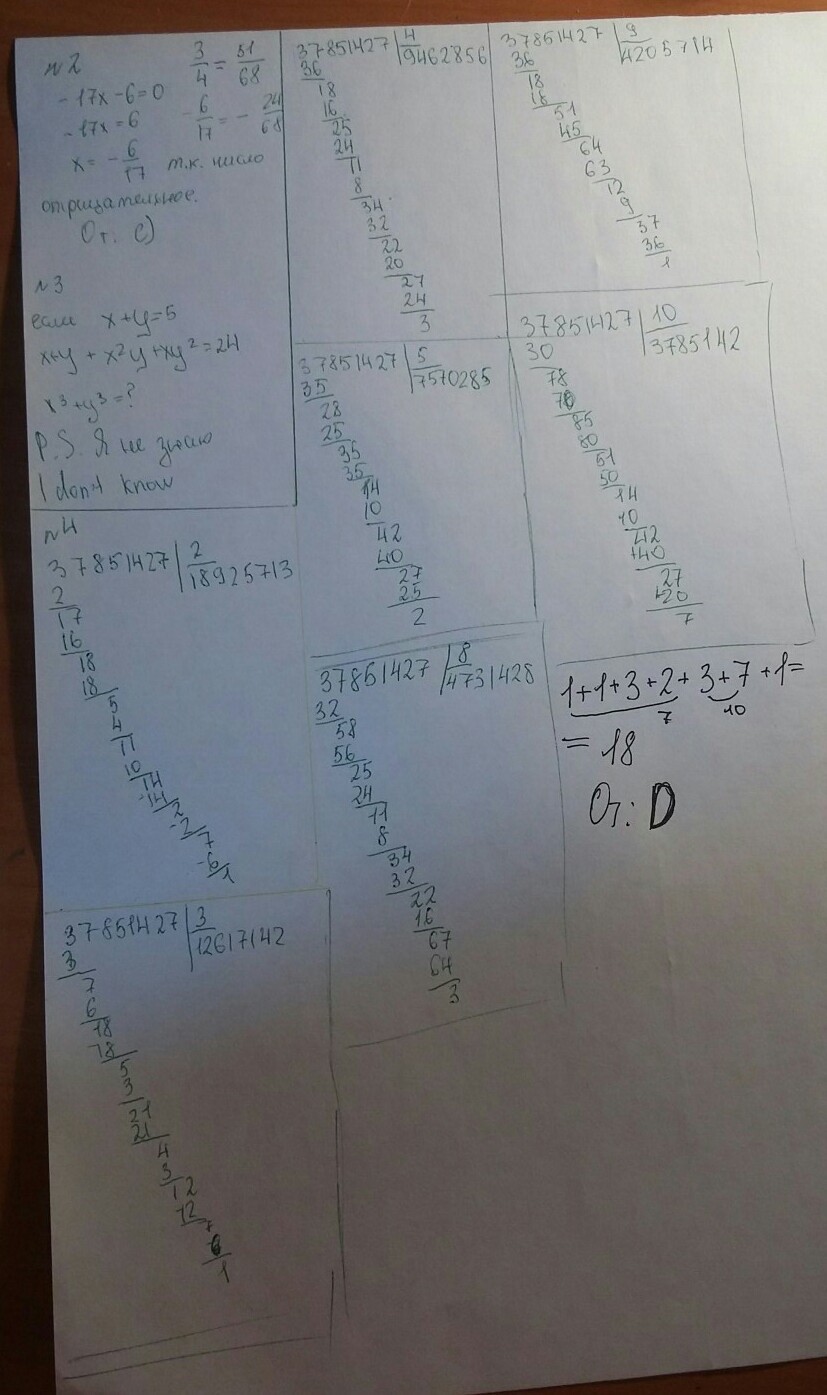 №2
3/4 = 51/68
-17x-6=0
-17x=6
-6/17 = -24/68
x= -6/17 т.к. число
отрицательное.
От: C)
№3
если x+y=5
x+y + x²y+xy²=24
x³+y³=?
P.S. Я не знаю
I don't know
№4
37851427 | 2
18925713
2
17
16
18
18
5
4
11
10
14
-14
2
-2
7
-6
1
37851427 | 3
12617142
3
7
6
18
18
5
3
21
21
4
3
12
12
7
6
1
37851427 | 4
9462856
36
18
16
25
24
11
8
34
32
22
20
27
24
3
37851427 | 5
7570285
35
28
25
35
35
14
10
42
40
27
25
2
37851427 | 8
4731428
32
58
56
25
24
11
8
34
32
22
16
67
64
3
37851427 | 9
4205714
36
18
18
51
45
64
63
12
9
37
36
1
37851427 | 10
3785142
30
78
70
85
80
51
50
14
10
42
40
27
20
7
1+1+3+2+3+7+1=
7 10
= 18
От: D